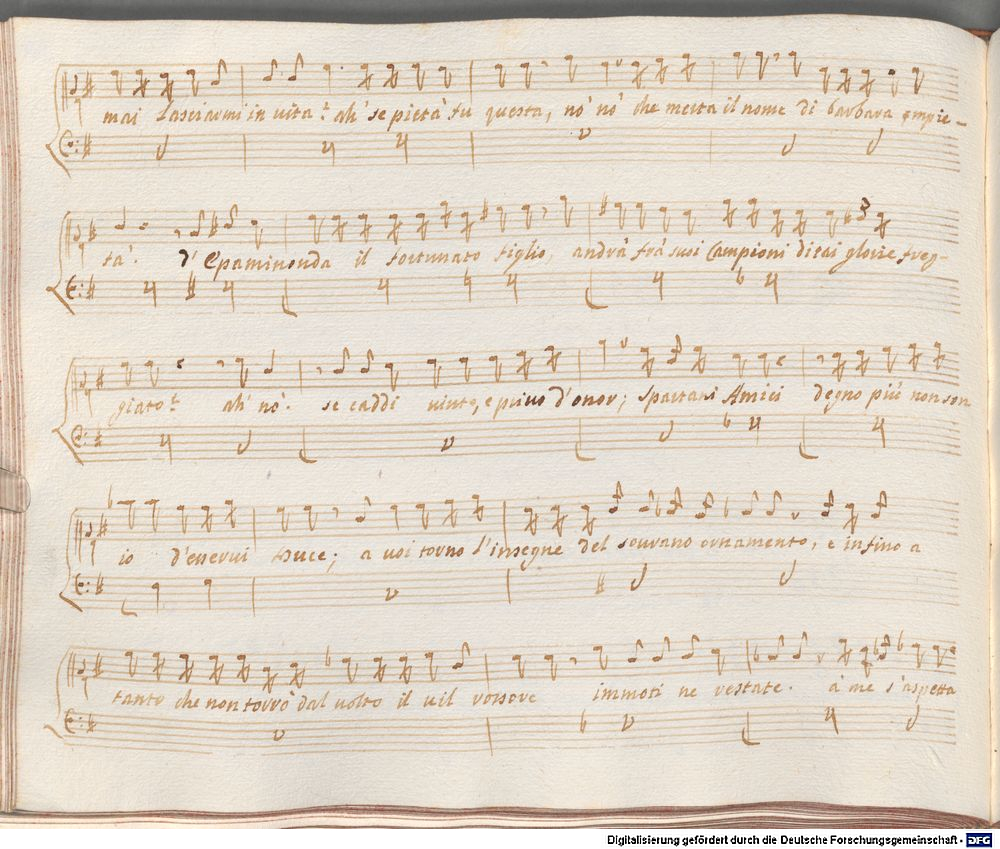 mai lasciarmi in vita? ah' se pietà tu questa, nò nò che merta il nome di barbara empie-
tà. d'Epaminonda il fortunato figlio, andrà frà suoi Campioni di tai glorie freg-
giato? ah' nò. se caddi vinto, e privo d'onor; spartani Amici degno più non son
io d'esservi Duce; a voi torno l'insegne del sovrano ornamento, e infino a
tanto che non torrò dal volto il vil rossore immoti ne restate. a' me s'aspetta
Digitalisierung gefördert durch die Deutsche Forschungsgemeinschaft - DFG